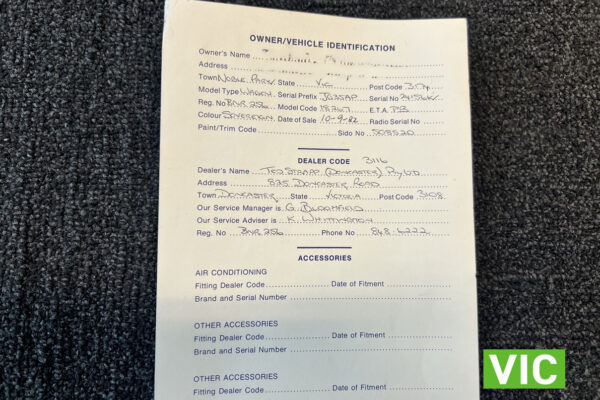 OWNER/VEHICLE IDENTIFICATION
Owner's Name
Address
Town Noble Park State Vic Post Code 3174
Model Type Wagon Serial Prefix JB35AP Serial No
Reg. No BNR 256 Model Code 18767 E.T.A.
Colour Sovereign Date of Sale 10-9-82 Radio Serial No
Paint/Trim Code Sido No 508520
DEALER CODE 3116
Dealer's Name Ted Strapp (Doncaster) P/L LTD
Address 825 Doncaster Road
Town Doncaster State Victoria Post Code 3108
Our Service Manager is G. Bloomfield
Our Service Adviser is K. Whittington
Reg. No BNR 256 Phone No 848-6222
ACCESSORIES
AIR CONDITIONING
Fitting Dealer Code Date of Fitment
Brand and Serial Number
OTHER ACCESSORIES
Fitting Dealer Code Date of Fitment
Brand and Serial Number
OTHER ACCESSORIES
Fitting Dealer Code Date of Fitment
VIC